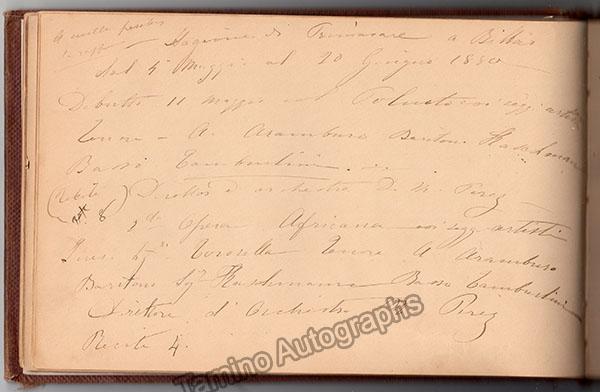 Stagione di Primavera a Bilbao
dal 4 Maggio al 20 Giugno 1880
Debutto 11 maggio col Poliuto coi segg. artisti
Tenore - A. Aramburo Baritono Kaschmann
Basso Tamburlini.
(Recite N. 8) Direttor d'orchestra D. N. Perez
2da Opera Africana coi segg. artisti
Torresella Tenore A Aramburo
Baritono Sig. Kaschmann Basso Tamburlini
Direttore d'Orchestra N. Perez
Recite 4.
Tamino Autographs